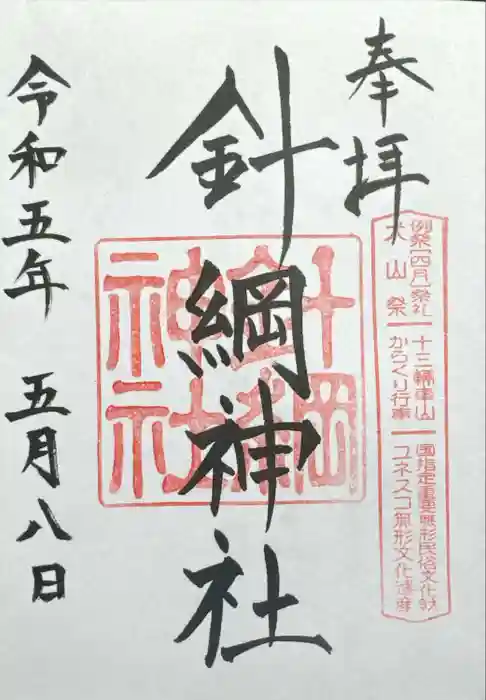 奉拝
例祭[四月]祭礼
犬山祭
十三輛車山
からくり行事
国指定重要無形民俗文化財
ユネスコ無形文化遺産
針綱神社
針綱神社
令和五年 五月八日